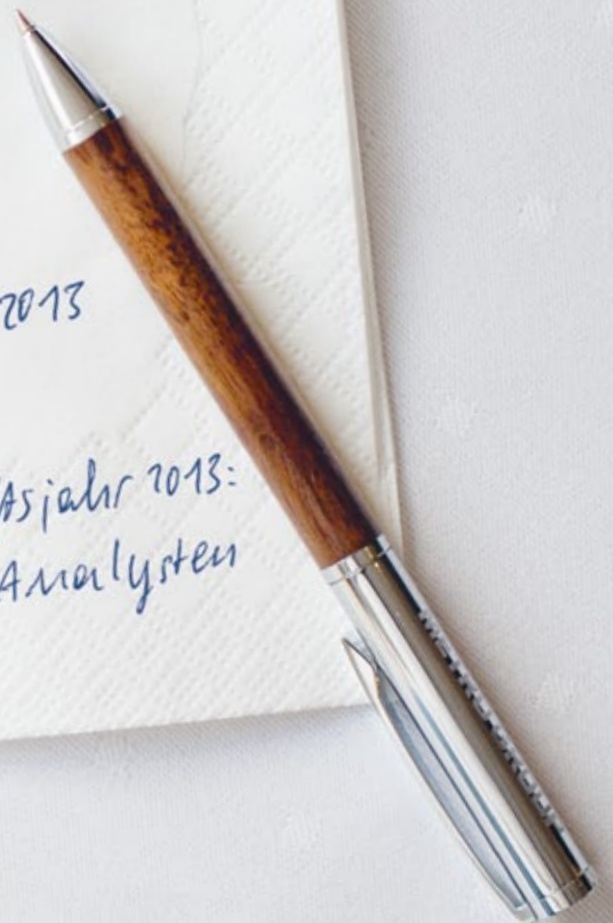 2013
Asjahr 2013:
Analysten